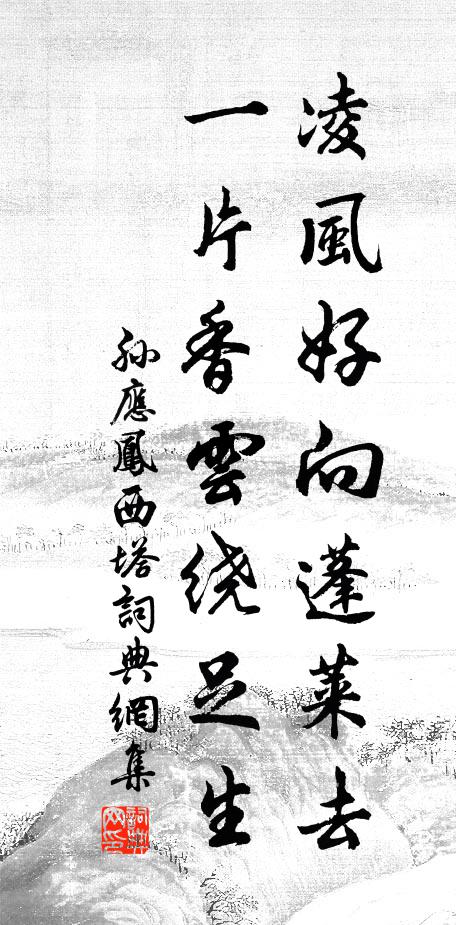 凌風好向蓬萊去
一片香雲繞足生
孙應鳳西塔詞典網集